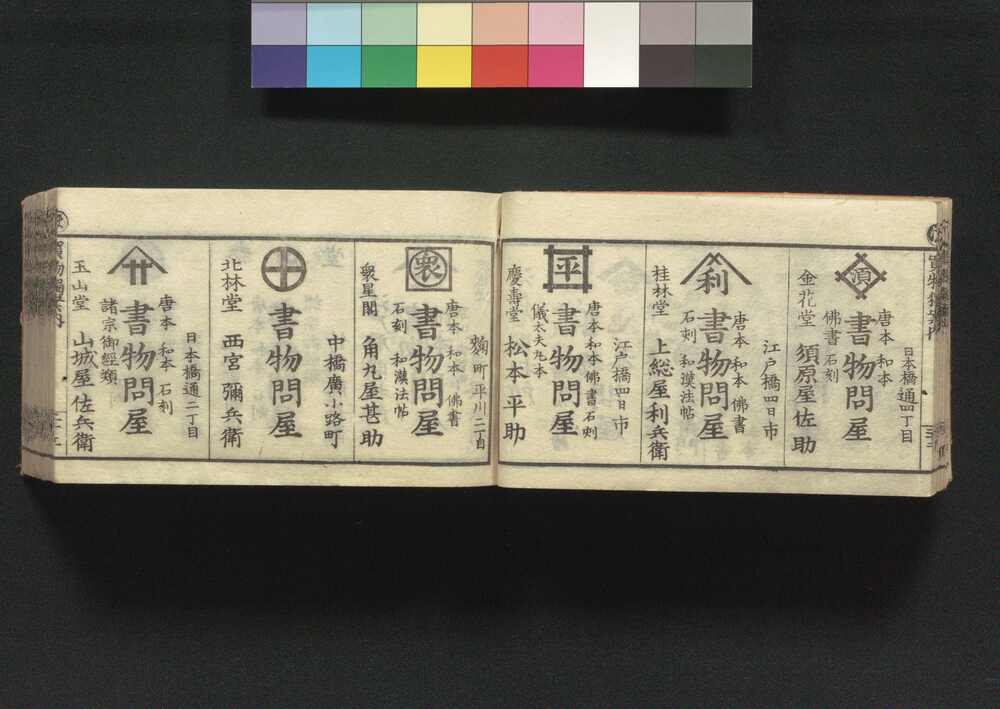 日本橋通四丁目
須
唐本 和本
書物問屋
佛書 石刻
金花堂 須原屋佐助
江戸橋四日市
利
唐本 和本 佛書
書物問屋
石刻 和漢法帖
桂林堂 上総屋利兵衛
江戸橋四日市
平
唐本 和本 佛書 石刻
書物問屋
儀太夫丸本
慶壽堂 松本平助
麹町平川二丁目
衆
唐本 和本 佛書
書物問屋
石刻 和漢法帖
衆星閣 角丸屋甚助
中橋廣小路町
書物問屋
北林堂 西宮彌兵衛
日本橋通二丁目
唐本 和本 石刻
書物問屋
諸宗御經類
玉山堂 山城屋佐兵衛